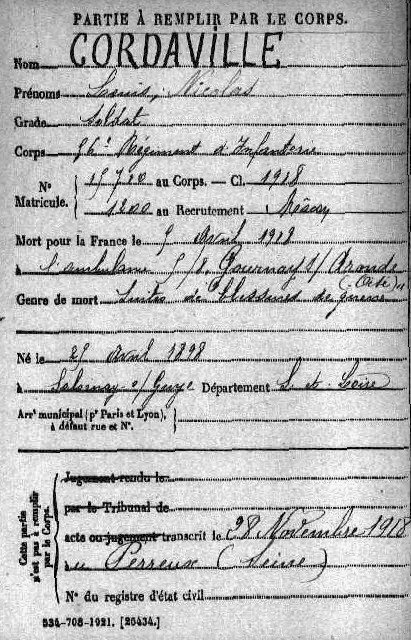 PARTIE À REMPLIR PAR LE CORPS.
Nom CORDAVILLE
Prénoms Louis, Nicolas
Grade Soldat
Corps 56e Régiment d'Infanterie
N° Matricule. 15730 au Corps. — Cl. 1918
1200 au Recrutement Mâcon
Mort pour la France le 5 Avril 1918
à l'ambulance 5/8 Gournay s/ Aronde (Oise)
Genre de mort Suites de blessures de guerre
Né le 25 Avril 1898
à Salornay s/ Guye Département S. et Loire
Arrt municipal (pr Paris et Lyon),
à défaut rue et N°.
Cette partie n'est pas à remplir par le Corps.
Jugement rendu le
par le Tribunal de
acte ou jugement transcrit le 28 Novembre 1918
au Perreux (Seine)
N° du registre d'état civil
534-708-1921. [26434.]